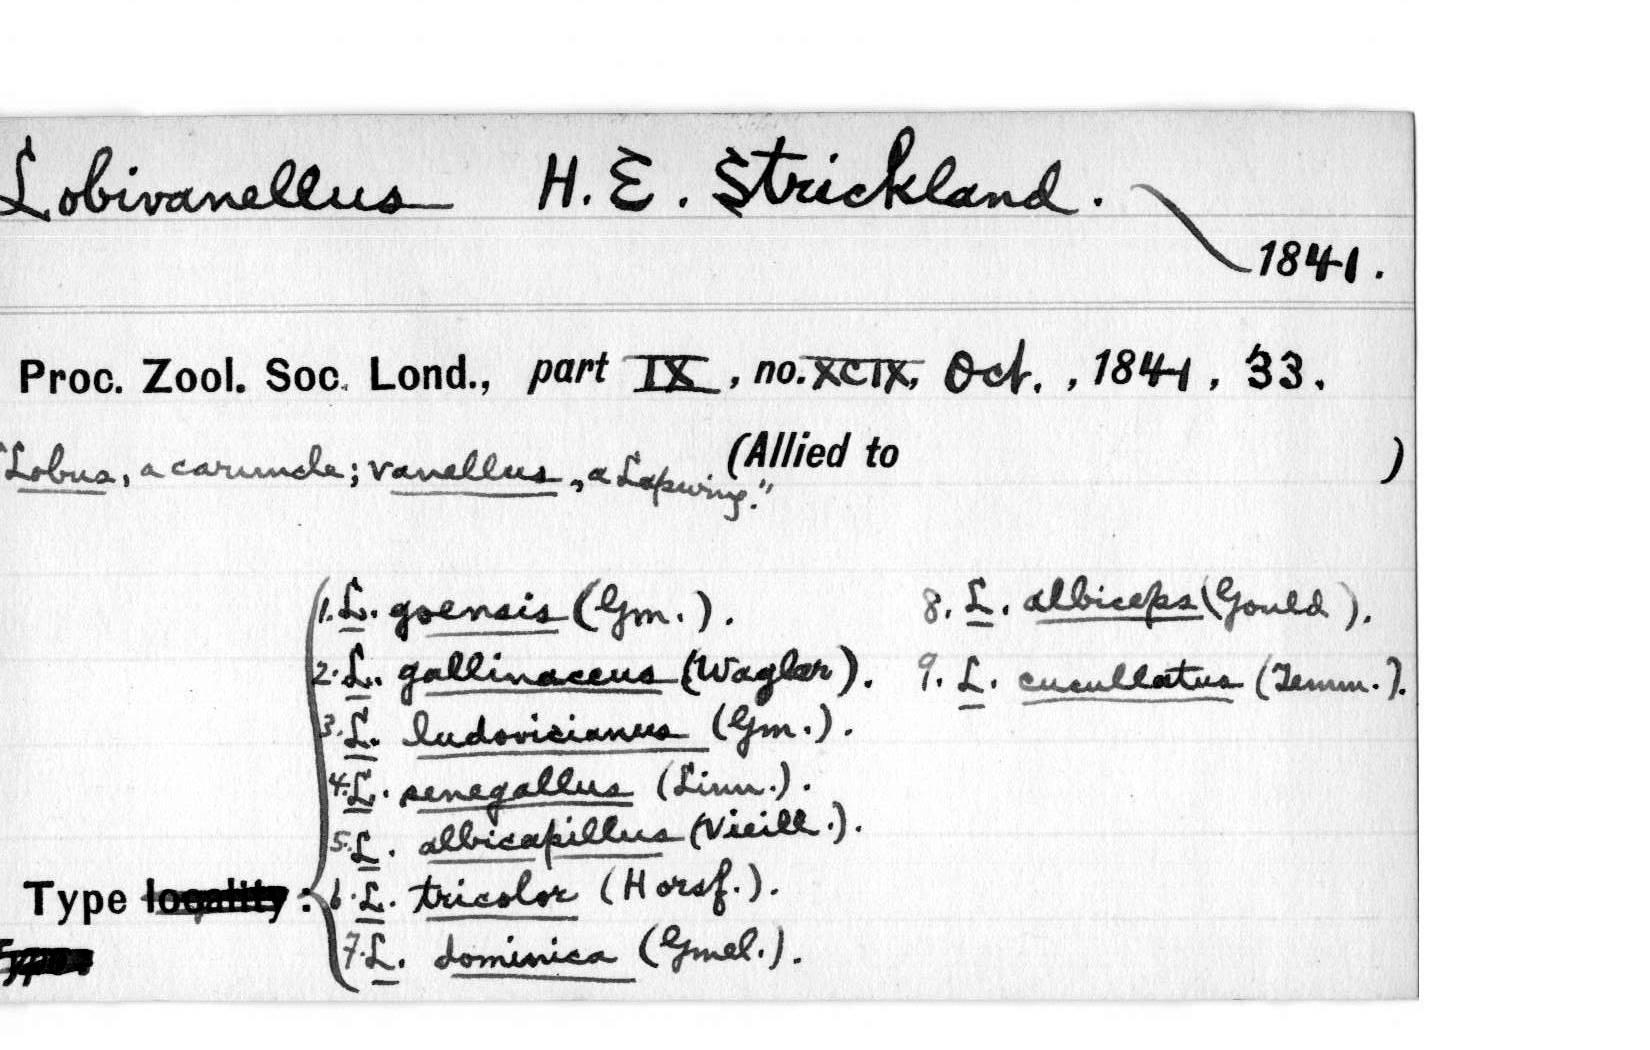 Lobivanellus H. E. Strickland.
1841.
Proc. Zool. Soc. Lond., part IX, no. XCIX, Oct., 1841, 33.
"Lobus, a caruncle; vanellus, a Lapwing." (Allied to )
1. L. goensis (Gm.). 8. L. albiceps (Gould).
2. L. gallinaceus (Wagler). 9. L. cucullatus (Temm.).
3. L. ludovicianus (Gm.).
4. L. senegallus (Linn.).
5. L. albicapillus (Vieill.).
Type locality: 6. L. tricolor (Horsf.).
7. L. dominica (Gmel.).